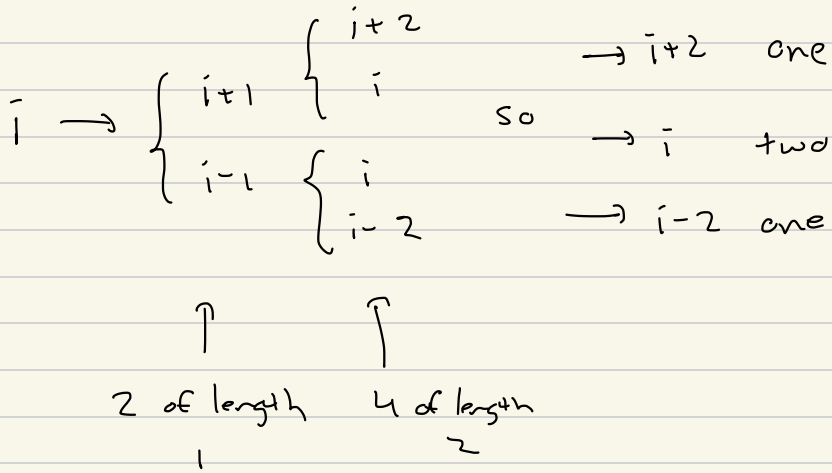 i + 2
i + 1
i
i → so
i - 1
i
i - 2
→ i+2 one
→ i two
→ i-2 one
↑ ↑
2 of length 4 of length
1 2